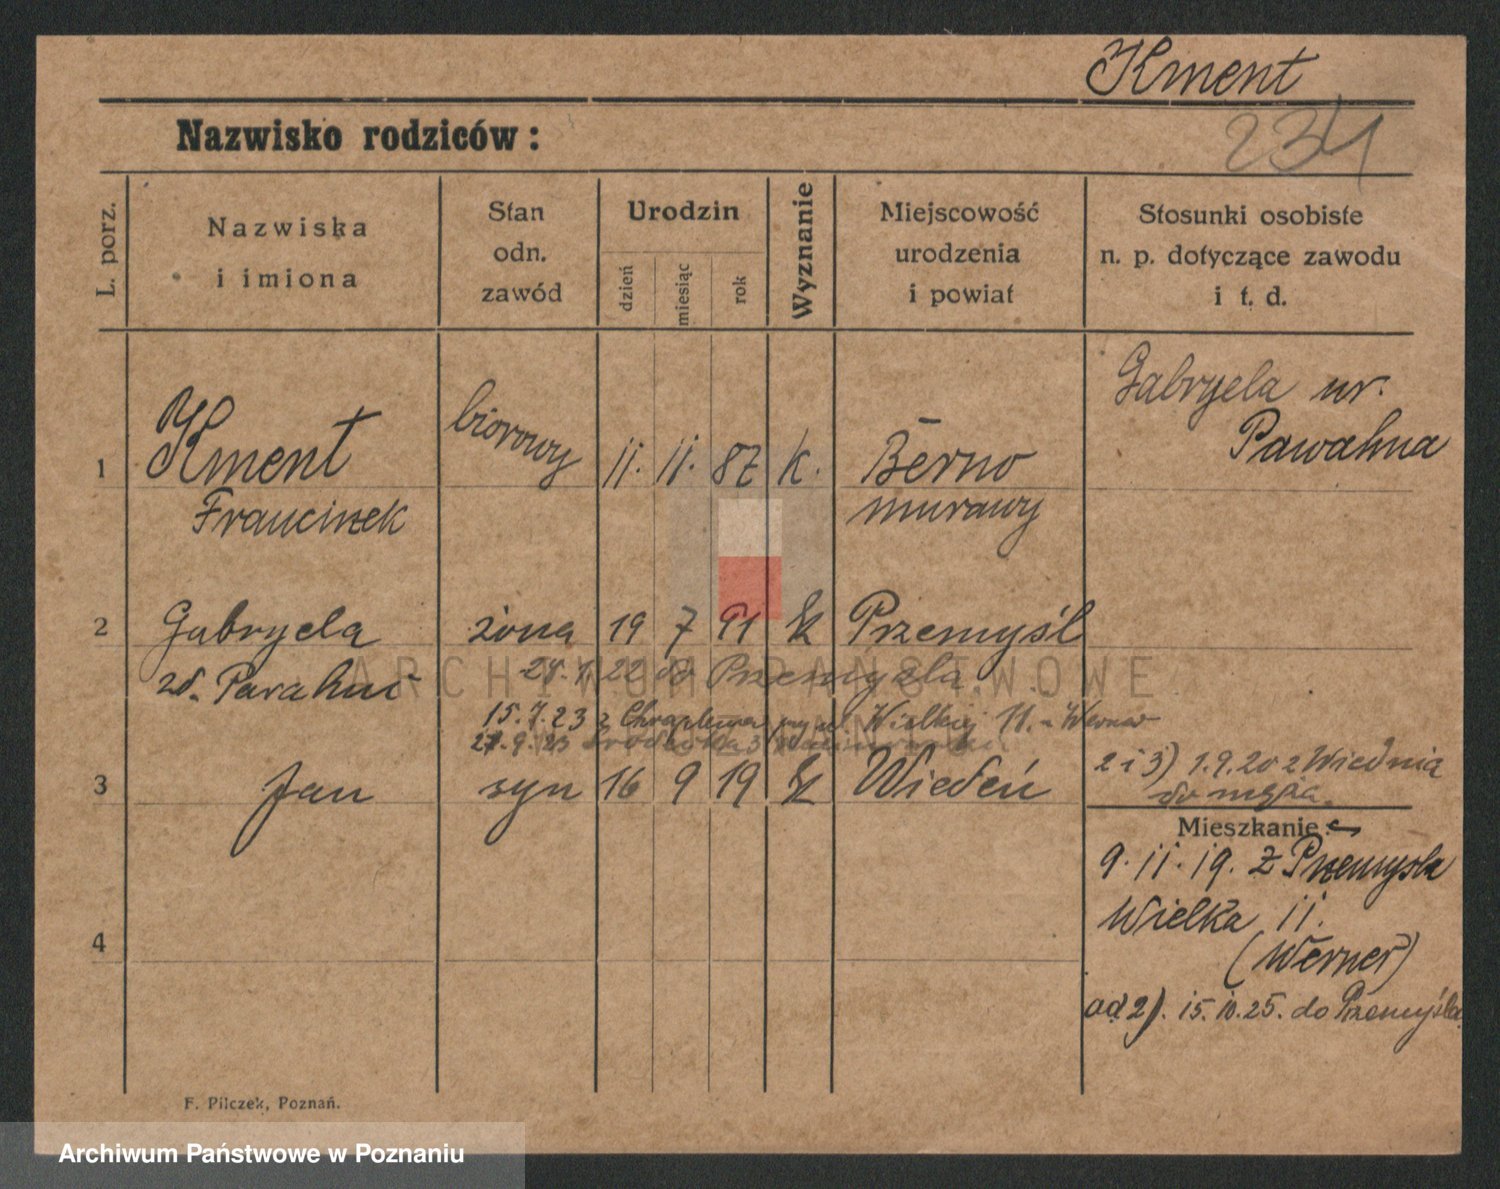 Kment
234
Nazwisko rodziców:
L. porz.
Nazwiska
i imiona
Stan
odn.
zawód
Urodzin
dzień
miesiąc
rok
Wyznanie
Miejscowość
urodzenia
i powiat
Stosunki osobiste
n. p. dotyczące zawodu
i t. d.
Gabryela ur.
Pawahna
1 Kment biorowy 11. 11. 87 k. Berno
Francinek murawy
2 Gabryela żona 19 7 91 k Przemyśl
ur. Parahui 22 do Przemyśla
ARCHIWUM PAŃSTWOWE
15.7.23 z ul. Wielkiej 11. - Werner
W POZNANIU
3 Jan syn 16 9 19 k Wiedeń
2 i 3) 1.9.20 z Wiednia
do męża.
Mieszkanie:
9. 11. 19. z Przemyśla
Wielka 11.
(Werner)
4
ad 2). 15. 10. 25. do Przemyśla
F. Pilczek, Poznań.
Archiwum Państwowe w Poznaniu